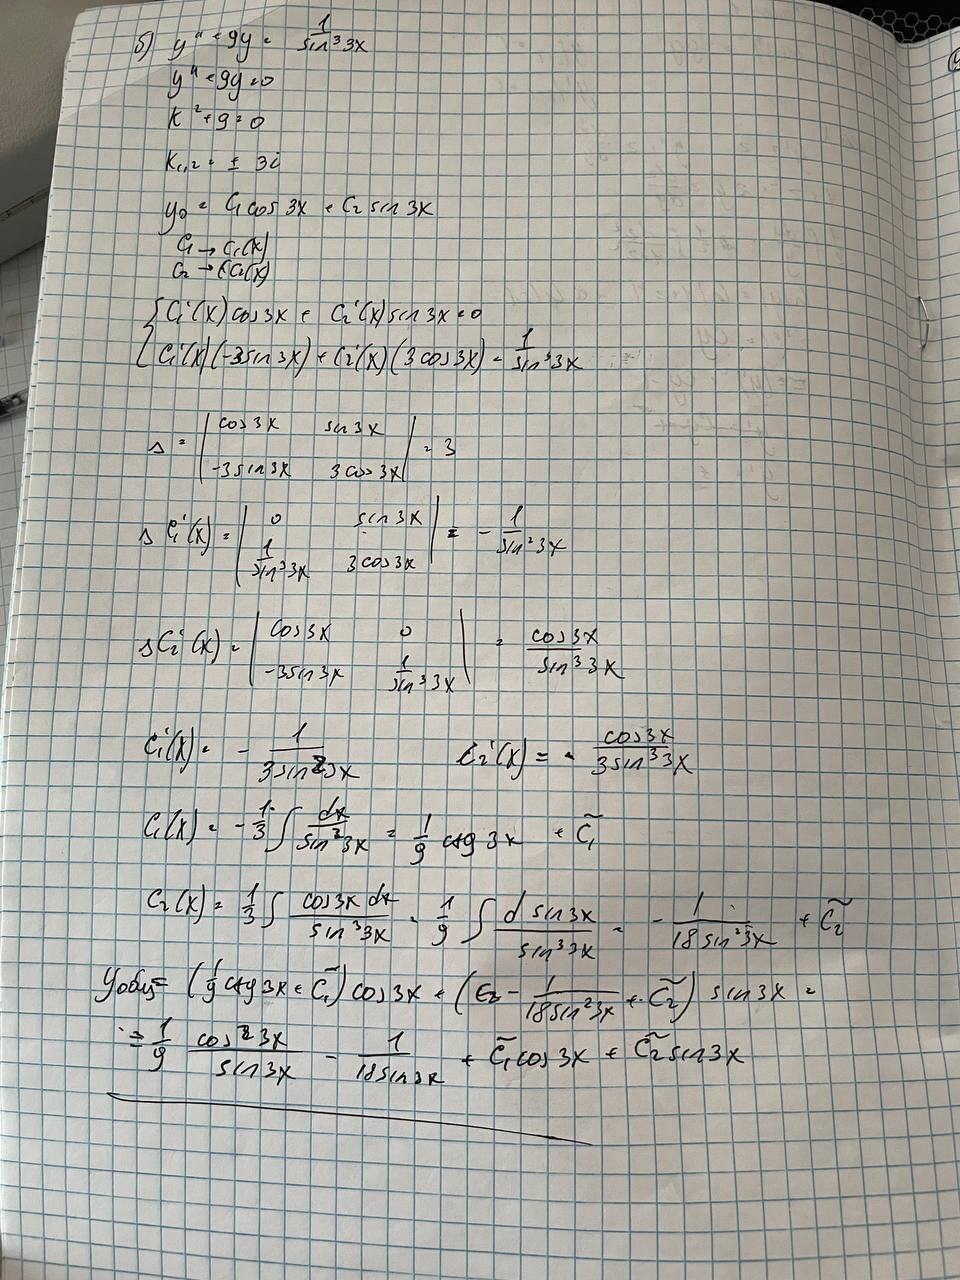 б) y'' + 9y = 1/sin³3x
y'' + 9y = 0
K² + 9 = 0
K₁,₂ = ± 3i
y₀ = C₁cos3x + C₂sin3x
C₁ → C₁(x)
C₂ → C₂(x)
{ C₁'(x)cos3x + C₂'(x)sin3x = 0
C₁'(x)(-3sin3x) + C₂'(x)(3cos3x) = 1/sin³3x
Δ = | cos3x sin3x ; -3sin3x 3cos3x | = 3
ΔC₁'(x) = | 0 sin3x ; 1/sin³3x 3cos3x | = - 1/sin²3x
ΔC₂'(x) = | cos3x 0 ; -3sin3x 1/sin³3x | = cos3x/sin³3x
C₁'(x) = - 1/3sin²3x C₂'(x) = cos3x/3sin³3x
C₁(x) = - 1/3 ∫ dx/sin²3x = 1/9 ctg3x + C̃₁
C₂(x) = 1/3 ∫ cos3x dx/sin³3x = 1/9 ∫ d sin3x/sin³3x = - 1/18sin²3x + C̃₂
yобщ = (1/9 ctg3x + C̃₁)cos3x + (- 1/18sin²3x + C̃₂) sin3x =
= 1/9 cos²3x/sin3x - 1/18sin3x + C̃₁cos3x + C̃₂sin3x